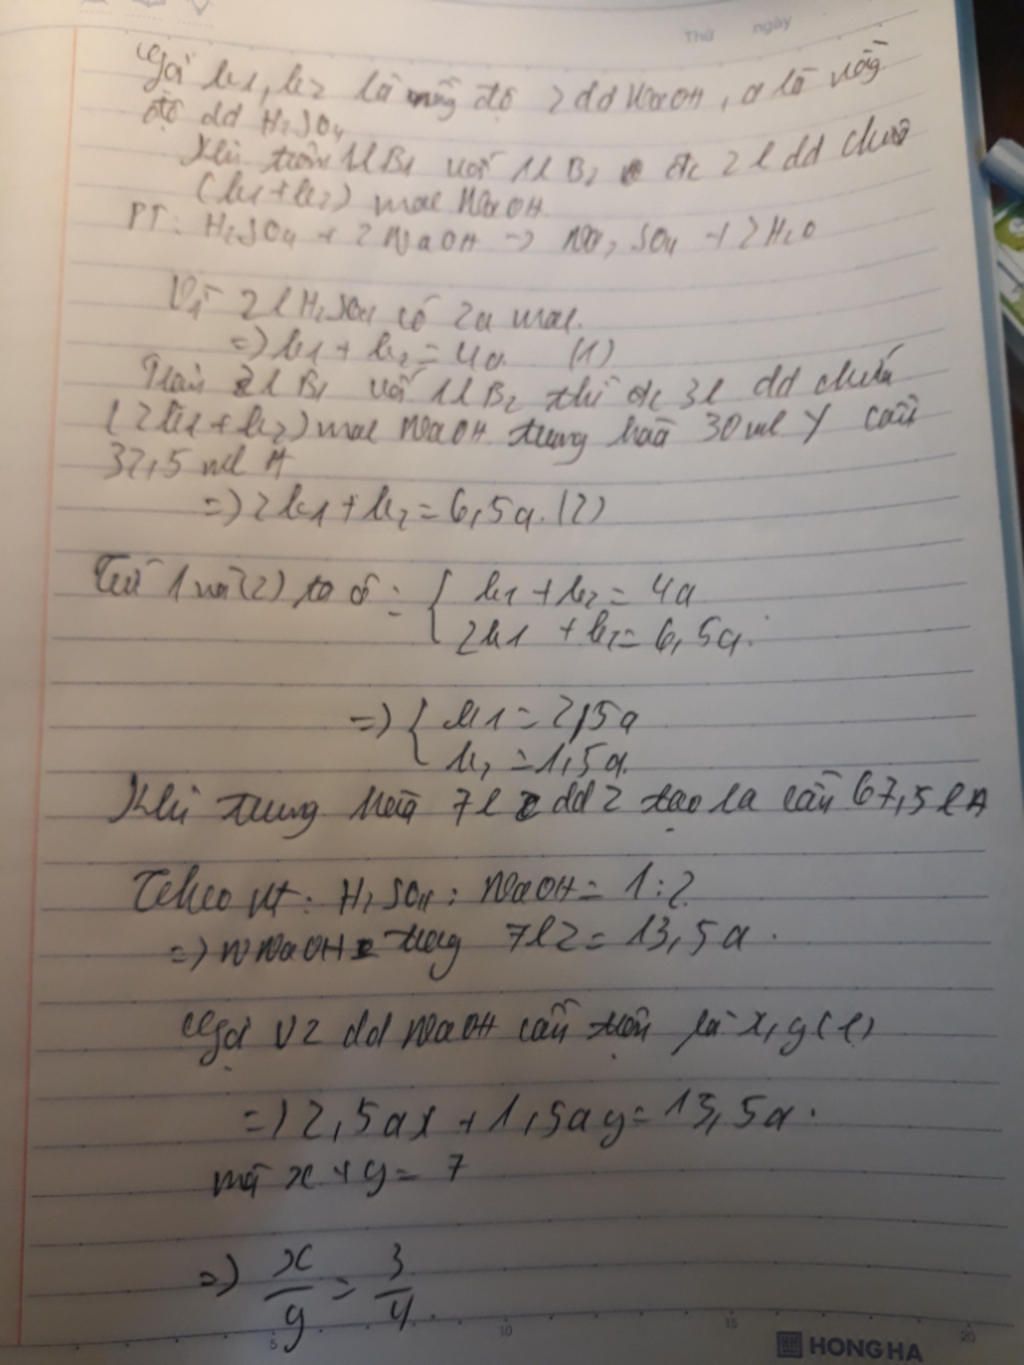 Thứ ngày
Gọi b1, b2 là nồng độ 2 dd NaOH, a là nồng
độ dd H2SO4
Khi trộn 1l B1 với 1l B2 đc 2l dd chứa
(b1+b2) mol NaOH
PT: H2SO4 + 2NaOH -> Na2SO4 + 2H2O
Vì 2l H2SO4 có 2a mol.
=> b1 + b2 = 4a (1)
Trộn 2l B1 với 1l B2 thì đc 3l dd chứa
(2b1+b2) mol NaOH trung hoà 30ml Y cần
32,5 ml A
=> 2b1 + b2 = 6,5a. (2)
Từ 1 và (2) ta có: { b1 + b2 = 4a
2b1 + b2 = 6,5a.
=> { b1 = 2,5a
b2 = 1,5a.
Khi trung hoà 7l dd Z tạo ra cần 67,5 l A
Theo pt: H2SO4 : NaOH = 1:2
=> nNaOH trong 7l Z = 13,5a.
Gọi V 2 dd NaOH cần trộn là x, y (l)
=> 2,5ax + 1,5ay = 13,5a.
mà x + y = 7
=> x/y = 3/4.
5 10 15 20
HONG HA